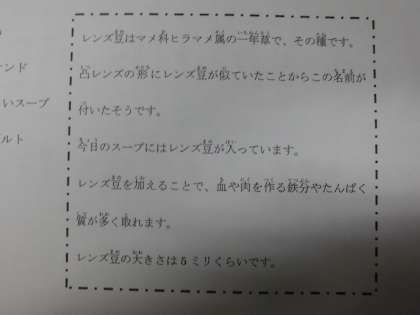 ンド
いスープ
ルト
レンズ豆はマメ科ヒラマメ属の一年草で、その種です。
凸レンズの形にレンズ豆が似ていたことからこの名前が
付いたそうです。
今日のスープにはレンズ豆が入っています。
レンズ豆を加えることで、血や肉を作る鉄分やたんぱく
質が多く取れます。
レンズ豆の大きさは5ミリくらいです。